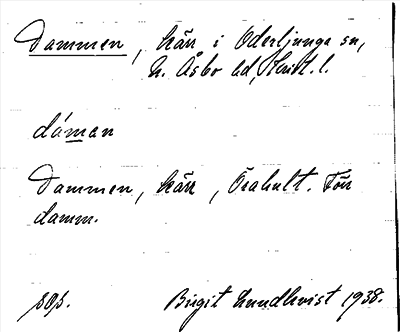 Dammen, kärr i Oderljunga sn,
N. Åsbo hd, Krist. l.
dáman
Dammen, kärr, Örahult. Förr
damm.
sos.
Birgit Lundkvist 1938.